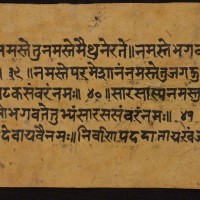 नमस्तेतुनमस्तेमैथुनेरते॥नमस्तेभगव
।३९॥नमस्तेपरमेशानंनमस्तेतुजगत्
टकसंवरंनमः॥४०॥सारसास्पनमस्तु
भगवतेतुभ्यंसारससंवरंनमः॥४१
देवायवैनमः॥निर्वाणपददातायरंज